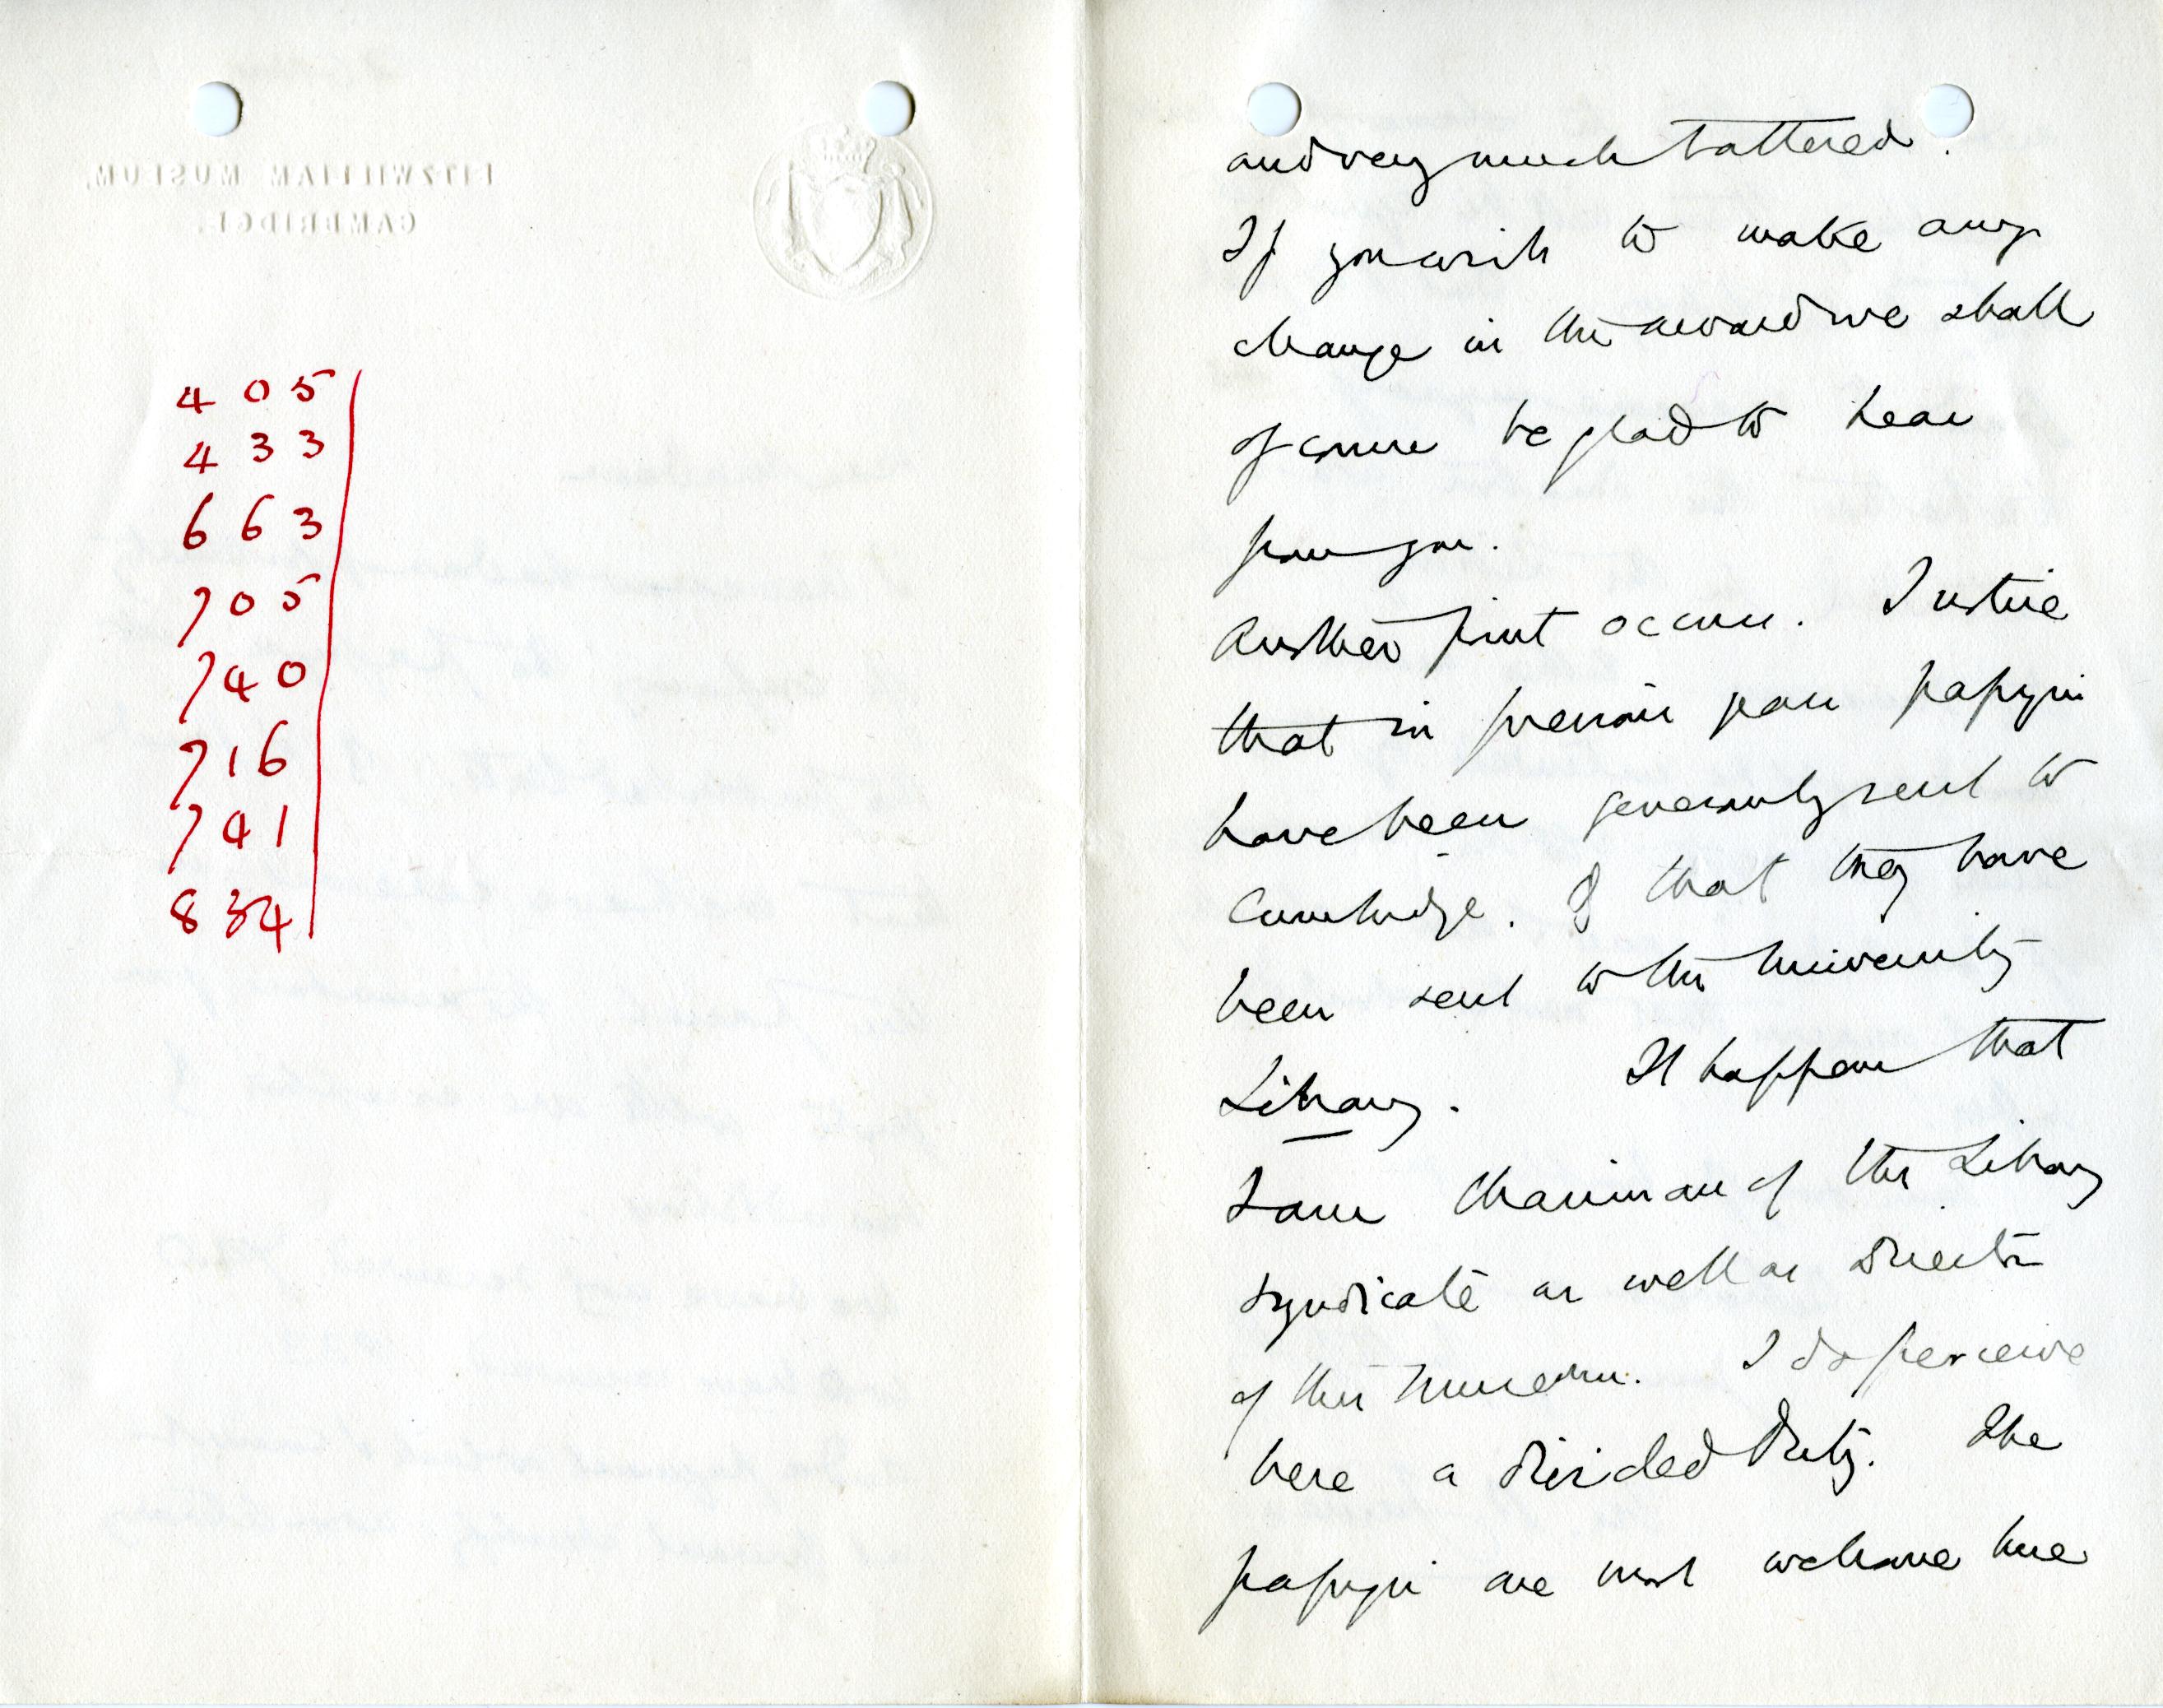 FITZWILLIAM MUSEUM,
CAMBRIDGE.
405
433
663
705
740
716
741
834
and very much tattered.
If you wish to make any
change in the award we shall
of course be glad to hear
from you.
Another point occurs. I notice
that in previous years papyri
have been generously sent to
Cambridge. & that they have
been sent to the University
Library. It happens that
I am Chairman of the Library
Syndicate as well as Director
of this Museum. I do perceive
here a divided Duty. The
papyri are most welcome here